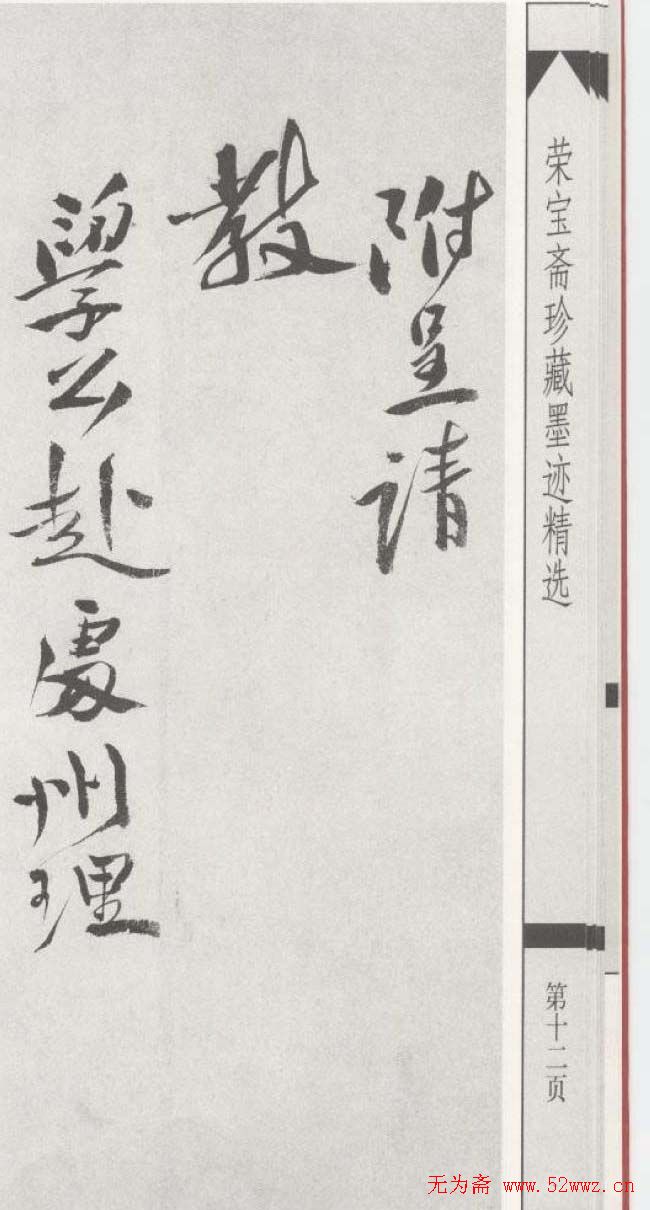 荣宝斋珍藏墨迹精选
第十二页
附呈请
教
学公赴處州理
无为斋 www.52wwz.cn